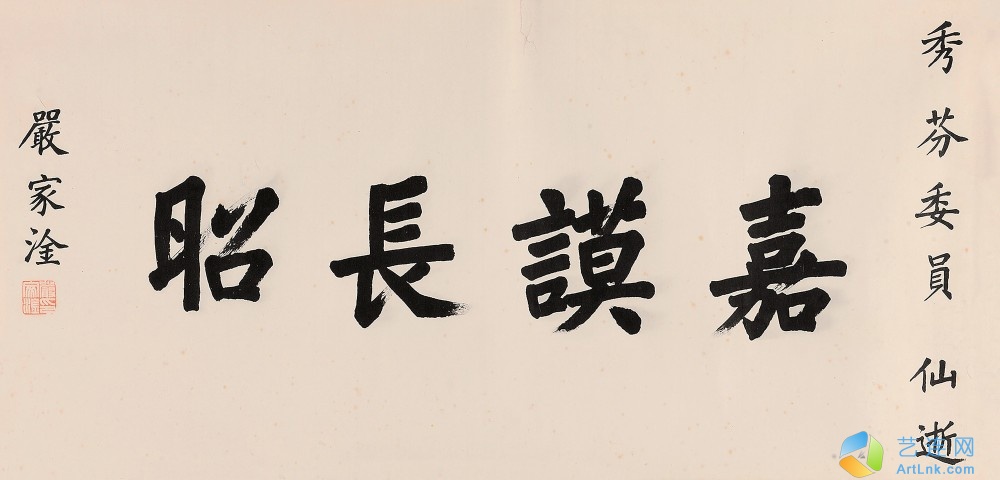 秀芬委員 仙逝
嘉謨長昭
嚴家淦
艺连网
ArtLnk.com